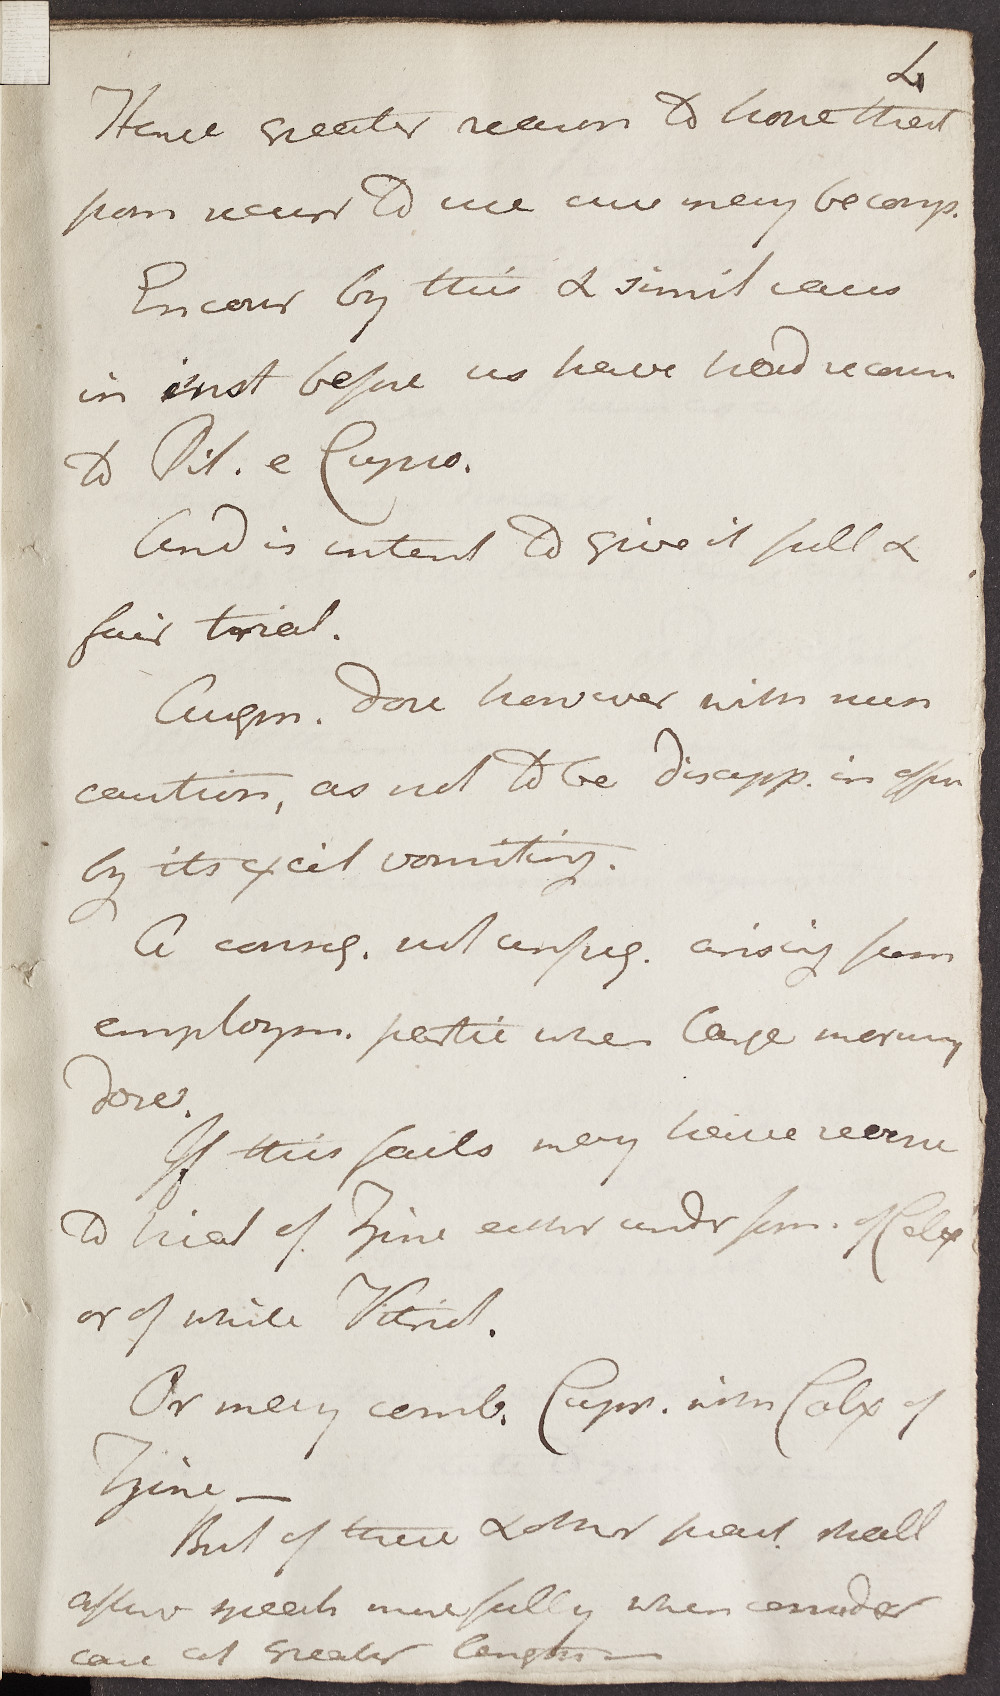 4
Hence greater reason to hope that
from recurr to use cure may be comp.
Encour by this & simil cases
in inst before us have had recour
to Pil. e Cupro.
And is intent to give it full &
fair trial.
Augm. dose however with such
caution, as not to be disapp. in effec
by its excit vomiting.
A conseq. not unfreq. arising from
employm. partic when large morning
doses.
If this fails may have recour
to trial of Zinc either under form. of Calx
or of white Vitriol.
Or may comb. Cupr. with Calx of
Zinc —
But of these & other pract. shall
after speak more fully when consider
case at greater length —